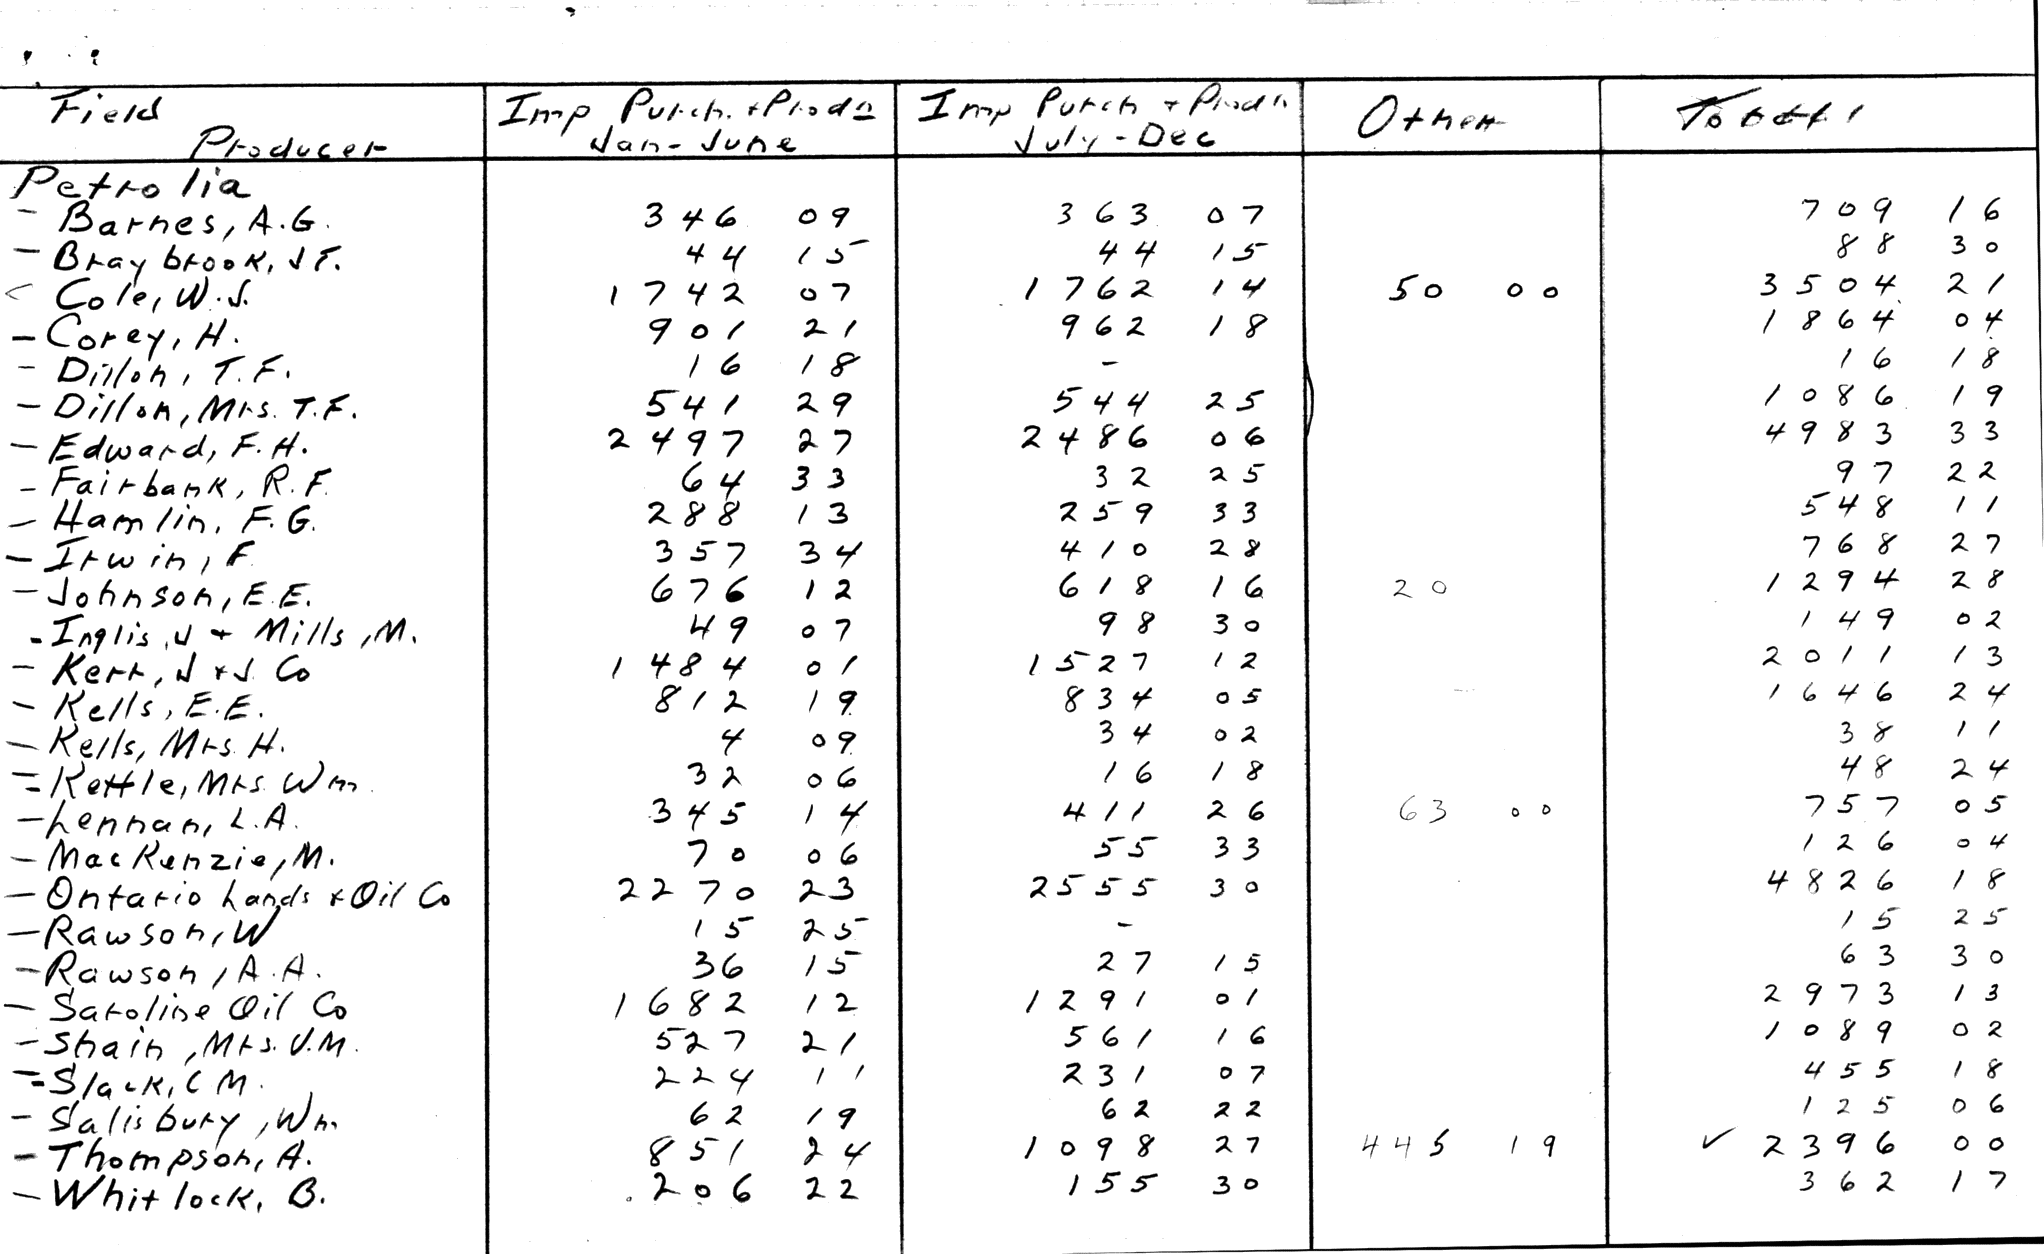 Field Producer Imp Purch. + Prodn Jan-June Imp Purch + Prodn July-Dec Other Total
Petrolia
- Barnes, A.G. 346 09 363 07 709 16
- Braybrook, J F. 44 15 44 15 88 30
Cole, W.J. 1742 07 1762 14 50 00 3504 21
- Corey, H. 901 21 962 18 1864 04
- Dillon, T.F. 16 18 - 16 18
- Dillon, Mrs. T.F. 541 29 544 25 1086 19
- Edward, F.H. 2497 27 2486 06 4983 33
- Fairbank, R.F. 64 33 32 25 97 22
- Hamlin, F.G. 288 13 259 33 548 11
- Irwin, F 357 34 410 28 768 27
- Johnson, E.E. 676 12 618 16 20 1294 28
- Inglis, J + Mills, M. 49 07 98 30 149 02
- Kerr, J + J. Co 1484 01 1527 12 2011 13
- Kells, E.E. 812 19 834 05 1646 24
- Kells, Mrs. H. 4 09 34 02 38 11
= Kettle, Mrs. Wm. 32 06 16 18 48 24
- Lennan, L.A. 345 14 411 26 63 00 757 05
- MacKenzie, M. 70 06 55 33 126 04
- Ontario Lands + Oil Co 2270 23 2555 30 4826 18
- Rawson, W 15 25 - 15 25
- Rawson, A.A. 36 15 27 15 63 30
- Saroline Oil Co 1682 12 1291 01 2973 13
- Shain, Mrs. J.M. 527 21 561 16 1089 02
= Slack, C M. 224 11 231 07 455 18
- Salisbury, Wm 62 19 62 22 125 06
- Thompson, A. 851 24 1098 27 445 19 ✓ 2396 00
- Whitlock, B. 206 22 155 30 362 17